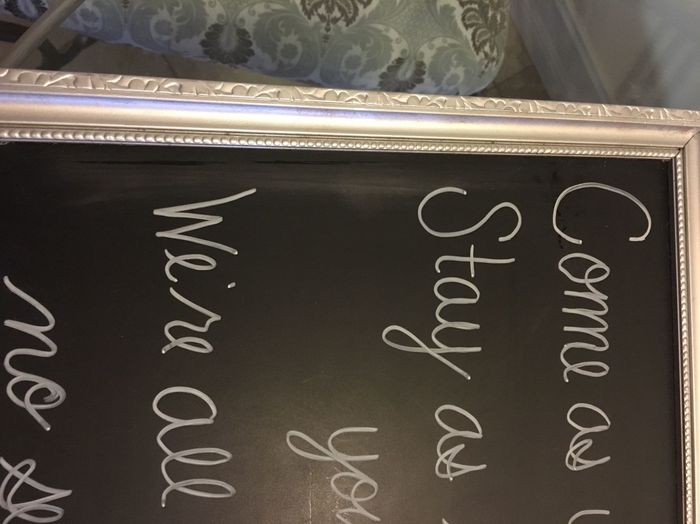 Come as
Stay as
you
We're all
no